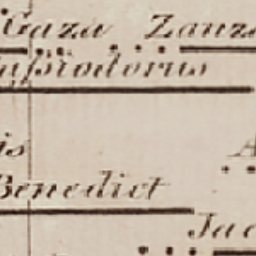 Gaza Zauz
assiodorus
is A
Benedict
Jac